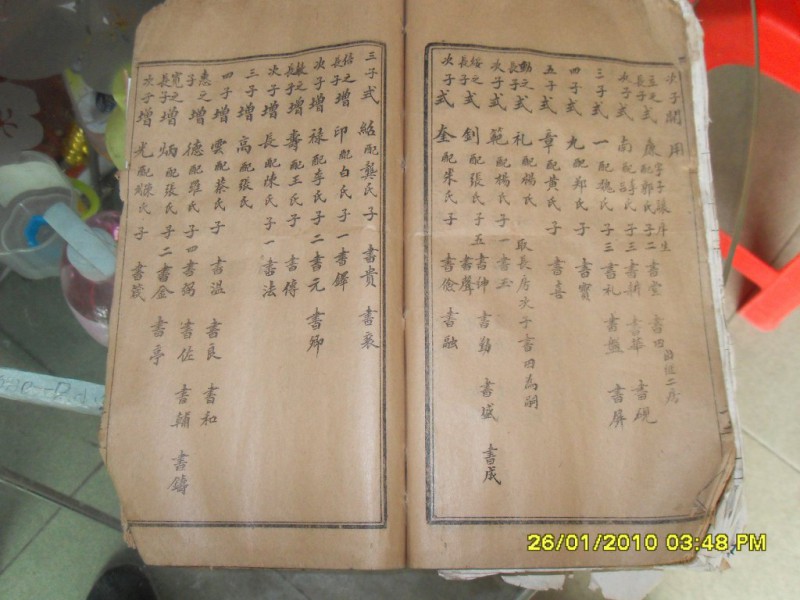 次子開用
立之長子式廉字子讓庠生配郭氏子二書堂書四出繼二房
次子式南配薛氏子三書耕書華書硯
三子式一配魏氏子三書札書盤書屏
四子式九配郑氏子書寶
五子式章配黄氏子書喜
勳之長子式礼配楊氏取長房次子書四為嗣
次子式範配楊氏子一書玉
綏之長子式釗配張氏子五書紳書勤書盛書成書聲
次子式奎配朱氏子書儉書融
三子式紹配龔氏子書貴書泰
倍之長子增印配白氏子一書鐸
次子增祿配李氏子二書元書卿
長子增壽配王氏子書傅
次子增長配陳氏子一書法
三子增高配張氏
四子增雲配蔡氏子書温書良書和
惠之子增德配羅氏子四書錫書佐書輔書鑄
寬之長子增炳配張氏子二書金書亭
次子增光配氏子書箴
26/01/2010 03:48 PM